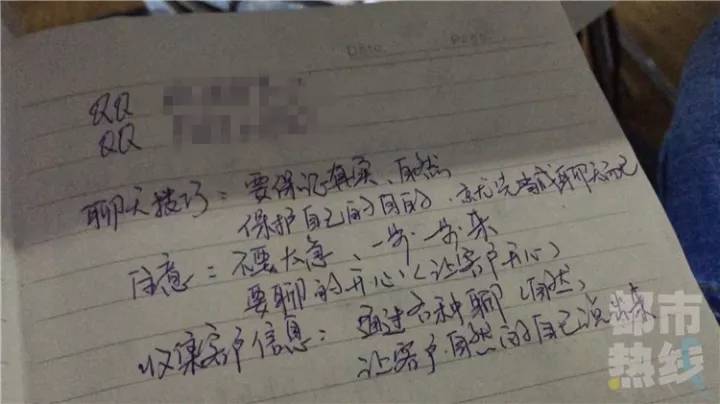 Date
Page
QQ
QQ
聊天技巧：要保证真实、自然
保护自己的目的，就完完当成聊天而已
注意：不要太急、一步一步来
要聊的开心（让客户开心）
收集客户信息：通过各种聊（自然，
让客户自然的自己说出来
都市
热线